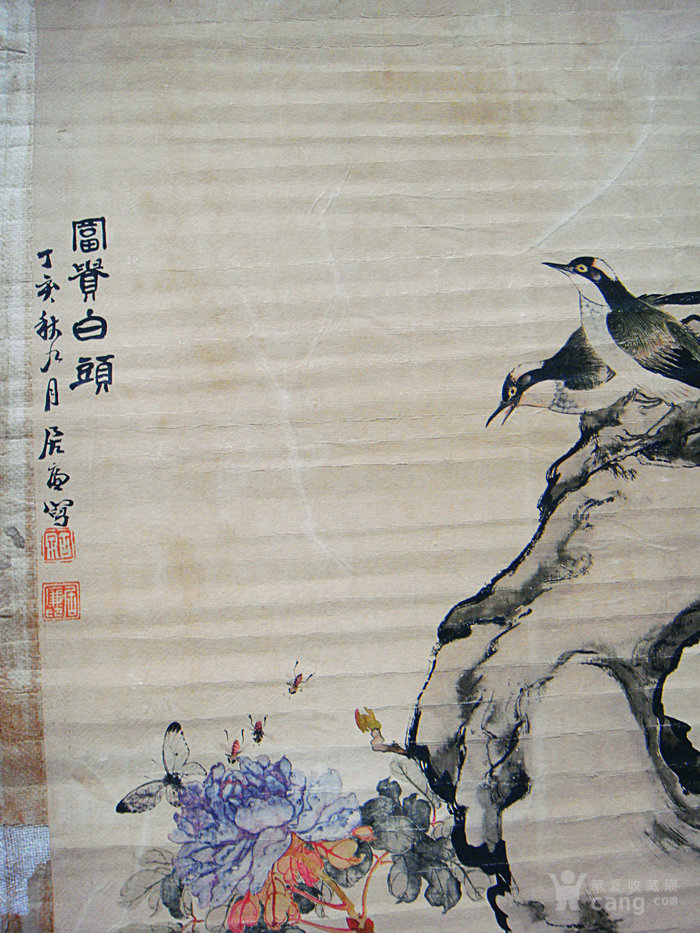 富貴白頭
丁亥秋九月居廉寫
居廉
華夏收藏網
cang.com